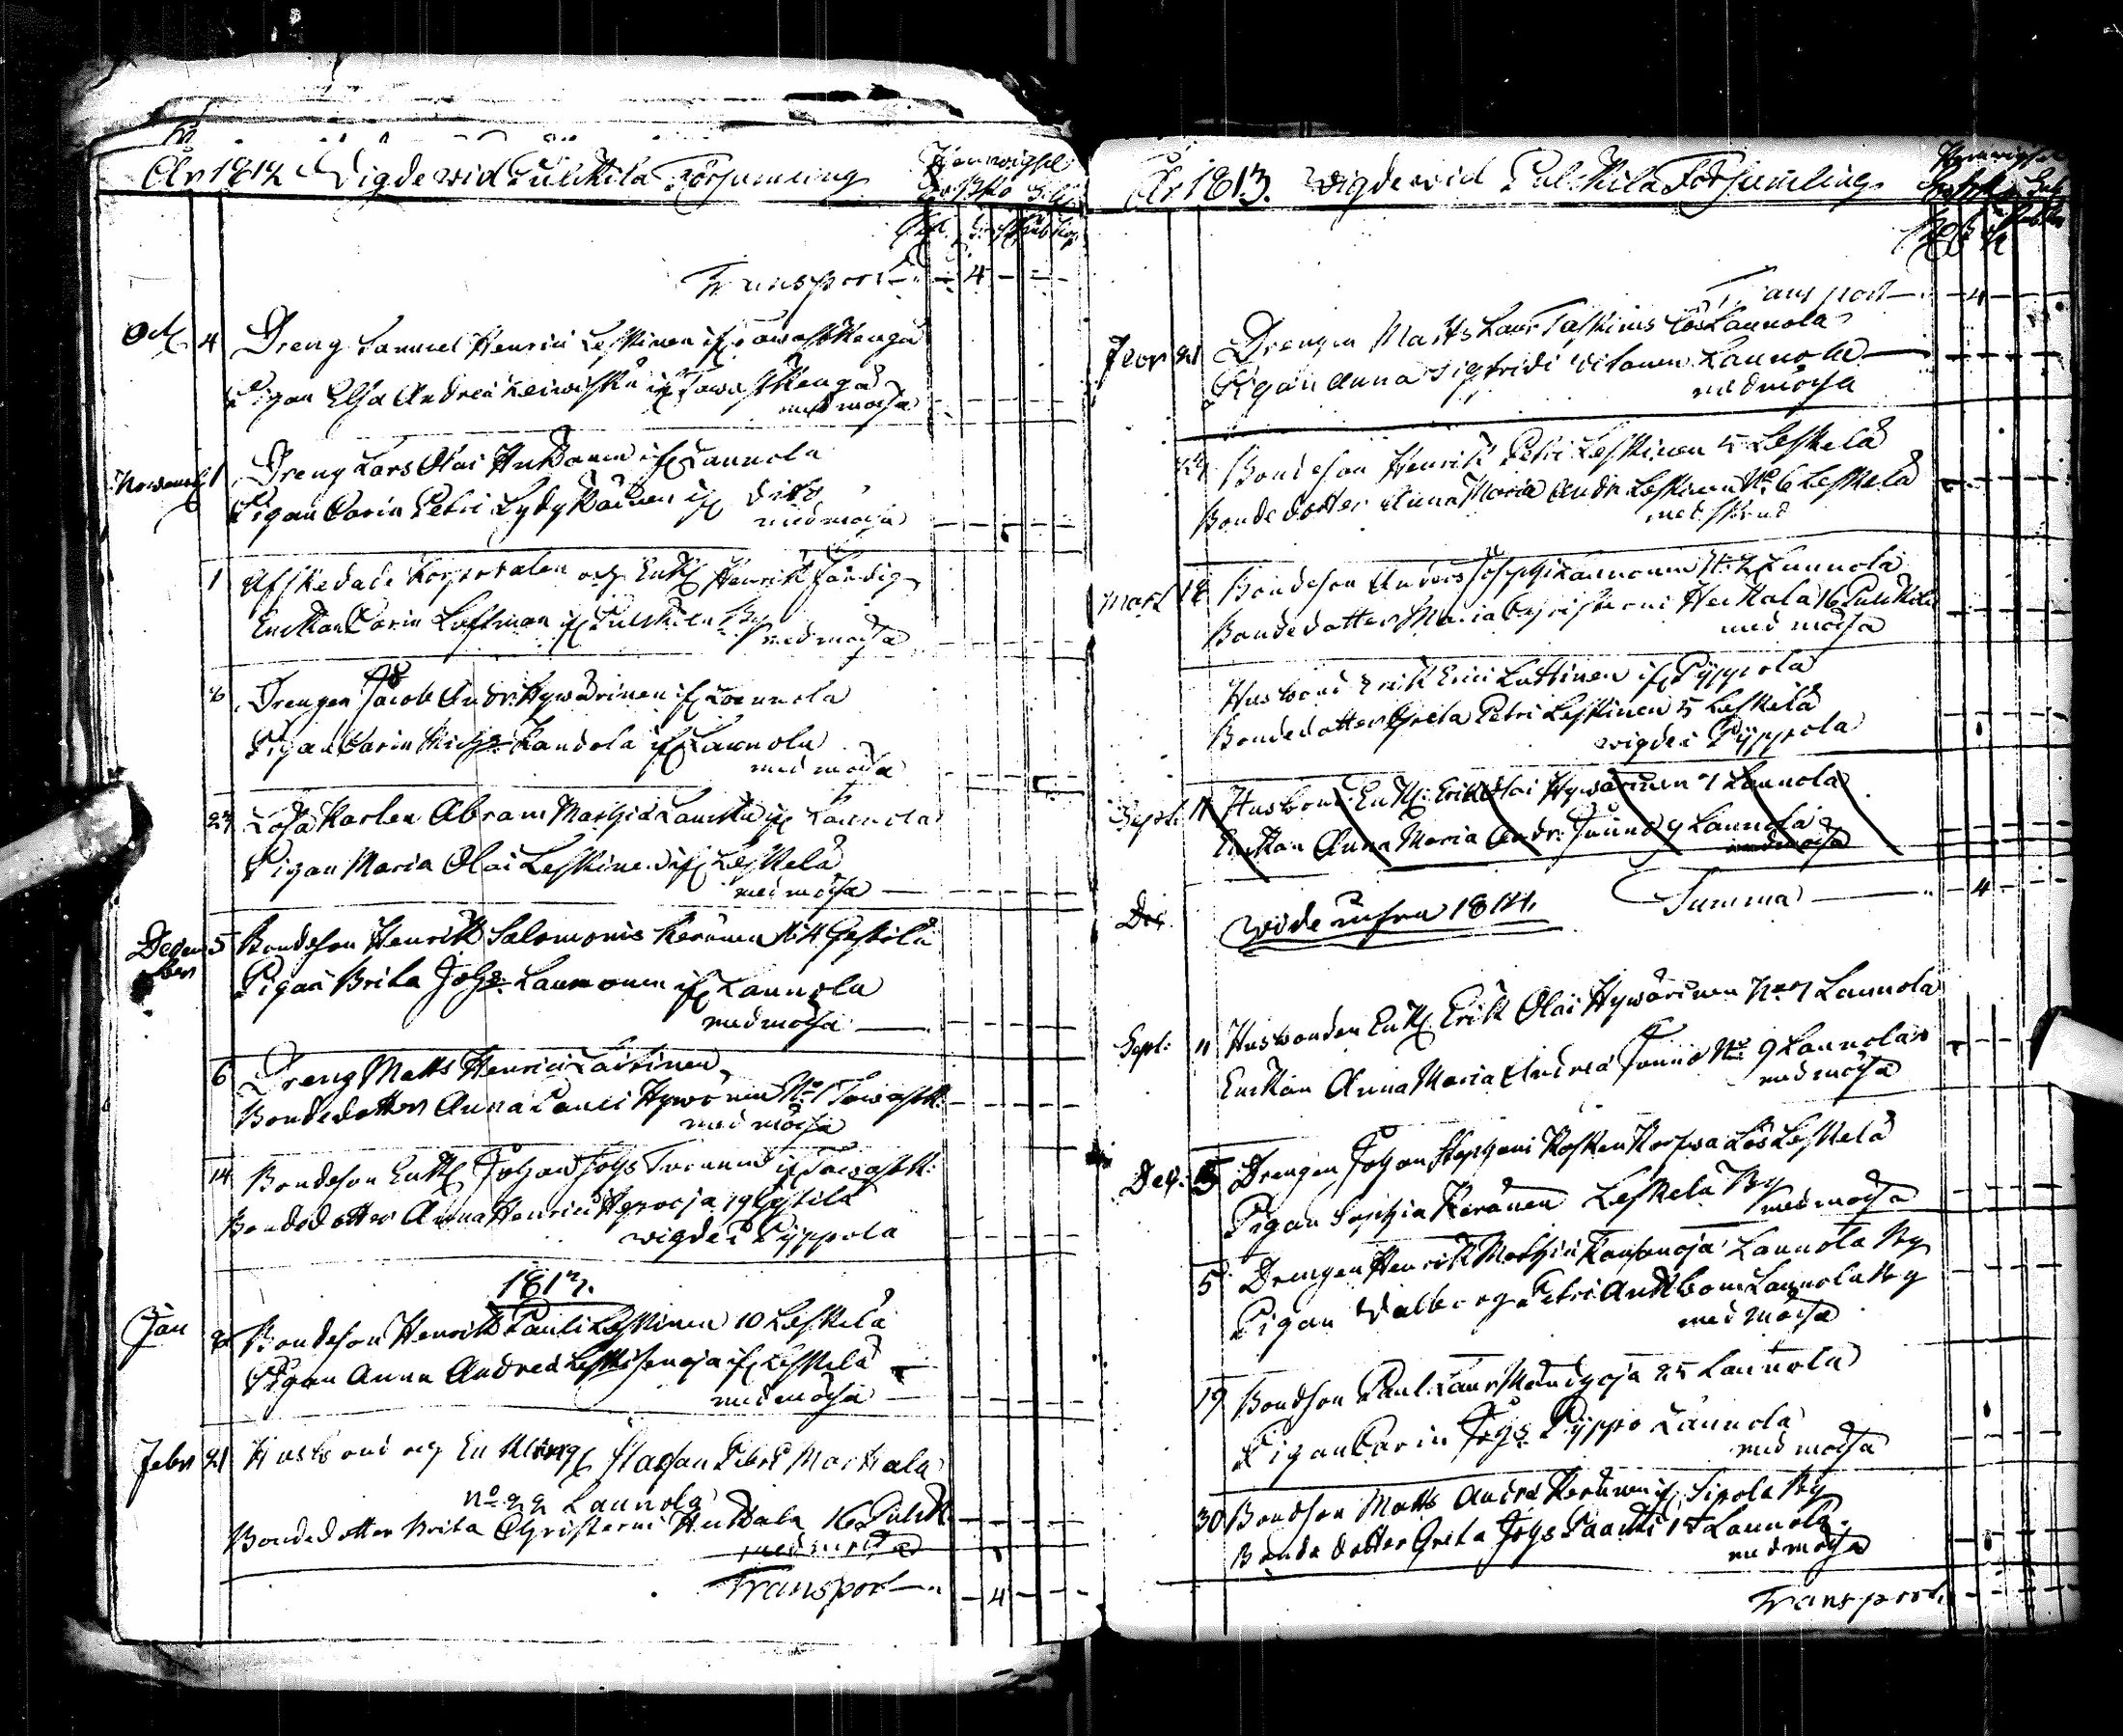 År 1812 Vigde wid Pulkkila Församling
Transport 4
Oct 4 Dreng Samuel Henrici Leskinen if Tawastkenga
Pigan Elsa Andreæ Leiwiskä if Tawastkenga
med mössa
Novemb 1 Dreng Lars Olai if Lannola
Pigan Carin Petri Lydykäinen if dito
med mössa
1 Afskedade Korporalen och Enkl Henrik Färdig
Enckan Carin Loffman if Pulkkila By
med mössa
6 Drengen Jacob Andr: Hywärinen if Lannola
Pigan Carin Mich: Kandola if Lannola
med mössa
27 Losa Karlen Abram Mathiæ if Lannola
Pigan Maria Olai Leskinen if Leskelä
med mössa
Decem 5 Bondeson Henrik Salomonis Keränen No 4
ber
Pigan Brita Johs: Lannonen if Lannola
med mössa
6 Dreng Matts Henrici Laitinen
Bondedotter Anna Pauli Hywönen No 1 Tawastk:
med mössa
14 Bondeson Enkl Johan Johs if Tawastk:
Bondedotter Anna Henrici 19
wigde i Pyppola
1813.
Jan Bondeson Henrik Pauli Leskinen 10 Leskelä
Pigan Anna Andreæ Leskisenoja if Leskelä
med mössa
Febr 21 Husbond och Enkling Staffan Petri Markala
No 22 Lannola
Bondedotter Brita Christerni Heikkala 16 Pulkk:
med mössa
Transport 4
År 1813. Wigde wid Pulkkila Församling
Transport 4
Febr 21 Drengen Matts Laur: Taskinus Lös Lannola
Pigan Anna Sigfridi Lannola
med mössa
24 Bondeson Henrik Petri Leskinen 5 Leskelä
Bondedotter Anna Maria Andr: Leskinen No 6 Leskelä
Mart 14 Bondeson Anders Josephi Lannonen No 2 Lannola
Bondedotter Maria Christerni Heikkala 16 Pulkkila
med mössa
Husbond Erik Erici Luttinen if Pyppola
Bondedotter Greta Petri Leskinen 5 Leskelä
wigde i Pyppola
Sept: 11 Husbond Enkl: Erik Olai Hywärinen 7 Lannola
Enckan Anna Maria Andr: 9 Lannola
med mössa
Summa 4
Dec. wide infra 1814.
Sept: 11 Husbonden Enkl Erik Olai Hywärinen No 7 Lannola
Enckan Anna Maria Andreæ No 9 Lannola
med mössa
Dec: 5 Drengen Johan Stephani Koskenkorfwa Lös Leskelä
Pigan Sophia Keränen Leskelä By
med mössa
5 Drengen Henrik Mathiæ Lannola By
Pigan Walborg Petri Lannola By
med mössa
19 Bondson Paul Laur: 25 Lannola
Pigan Carin Johs: Pyppo Lannola
med mössa
30 Bondson Matts Andreæ Keränen if Sipola By
Bondedotter Greta Johs Lannola
med mössa
Transport